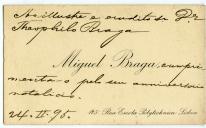 Ao illustre e erudito Sr. Dr.
Theophilo Braga
Miguel Braga, cumpri-
menta-o pelo seu anniversario
natalicio.
24-II-98. 115 Rua Escola Polytechnica Lisboa